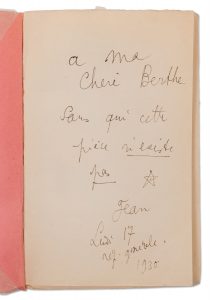 a ma
Cheri Berthe
sans qui cette
pièce n'existe
pas
Jean
Lundi 17
rep. generale.
1930